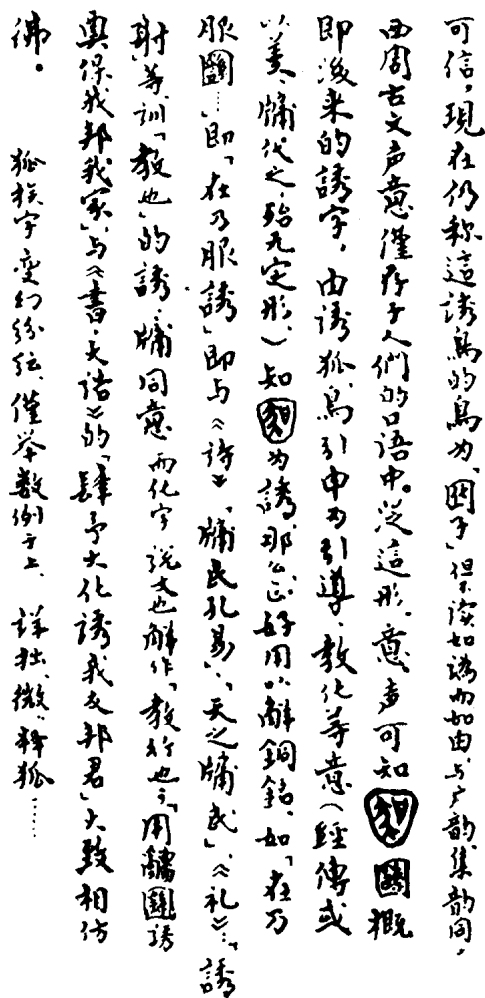 可信，现在仍称這誘鳥的鳥为「囮子」但不读如譌而如由，与广韵、集韵同，
西周古文声意僅存于人們的口语中。从這形、意、声可知圝概
即後来的誘字，由诱狐、鳥引申为引導、教化等意（经傳或
以羑、牖代之，殆无定形、）知为誘，那么正好用以解铜銘，如「在乃
服……」即「在乃服誘」即与《诗》「牖民孔易」、「天之牖民」、《礼》…「誘
射」等，训「教也」的誘、牖同意而化字说文也解作「教行也」，「用誘
奠保我邦我家」，与《書·大诰》的「肆予大化誘我友邦君」大致相仿
彿。
狐族字变幻纷纭、僅举数例于上，详拙、微、释狐……